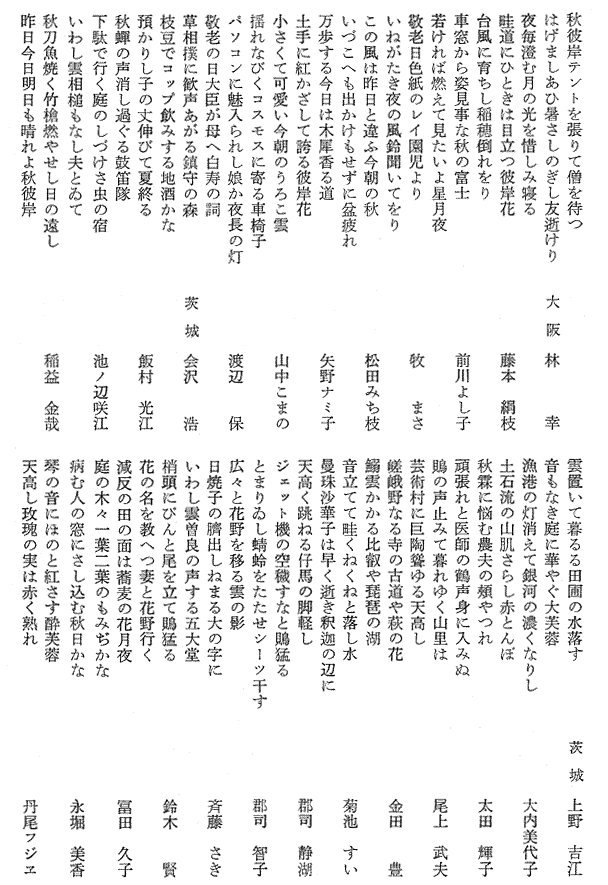 秋彼岸テントを張りて僧を待つ
はげましあひ暑さしのぎし友逝けり　大阪　林　幸
夜毎澄む月の光を惜しみ寝る
畦道にひときは目立つ彼岸花　藤本　絹枝
台風に育ちし稲穂倒れをり
車窓から姿見事な秋の富士　前川よし子
若ければ燃えて見たいよ星月夜
敬老日色紙のレイ園児より　牧　まさ
いねがたき夜の風鈴聞いてをり
この風は昨日と違ふ今朝の秋　松田みち枝
いづこへも出かけもせずに盆疲れ
万歩する今日は木犀香る道　矢野ナミ子
土手に紅かざして誇る彼岸花
小さくて可愛い今朝のうろこ雲　山中こまの
揺れなびくコスモスに寄る車椅子
パソコンに魅入られし娘か夜長の灯　渡辺　保
敬老の日大臣が母へ白寿の詞
草相撲に歓声あがる鎮守の森　茨城　会沢　浩
枝豆でコップ飲みする地酒かな
預かりし子の丈伸びて夏終る　飯村　光江
秋蟬の声消し過ぐる鼓笛隊
下駄で行く庭のしづけさ虫の宿　池ノ辺咲江
いわし雲相槌もなし夫とゐて
秋刀魚焼く竹槍燃やせし日の遠し　稲益　金哉
昨日今日明日も晴れよ秋彼岸
雲置いて暮るる田圃の水落す　茨城　上野　吉江
音もなき庭に華やぐ大芙蓉
漁港の灯消えて銀河の濃くなりし　大内美代子
土石流の山肌さらし赤とんぼ
秋霖に悩む農夫の頬やつれ　太田　輝子
頑張れと医師の鶴声身に入みぬ
鵙の声止みて暮れゆく山里は　尾上　武夫
芸術村に巨陶聳ゆる天高し
嵯峨野なる寺の古道や萩の花　金田　豊
鰯雲かかる比叡や琵琶の湖
音立てて畦くねくねと落し水　菊池　すい
曼珠沙華子は早く逝き釈迦の辺に
天高く跳ねる仔馬の脚軽し　郡司　静湖
ジェット機の空穢すなと鵙猛る
とまりゐし蜻蛉をたたせシーツ干す　郡司　智子
広々と花野を移る雲の影
日焼子の臍出しねまる大の字に　斉藤　さき
いわし雲曽良の声する五大堂
梢頭にぴんと尾を立て鵙猛る　鈴木　賢
花の名を教へつ妻と花野行く
減反の田の面は蕎麦の花月夜　冨田　久子
庭の木々一葉二葉のもみぢかな
病む人の窓にさし込む秋日かな　永堀　美香
琴の音にほのと紅さす酔芙蓉
天高し玫瑰の実は赤く熟れ　丹尾フジヱ